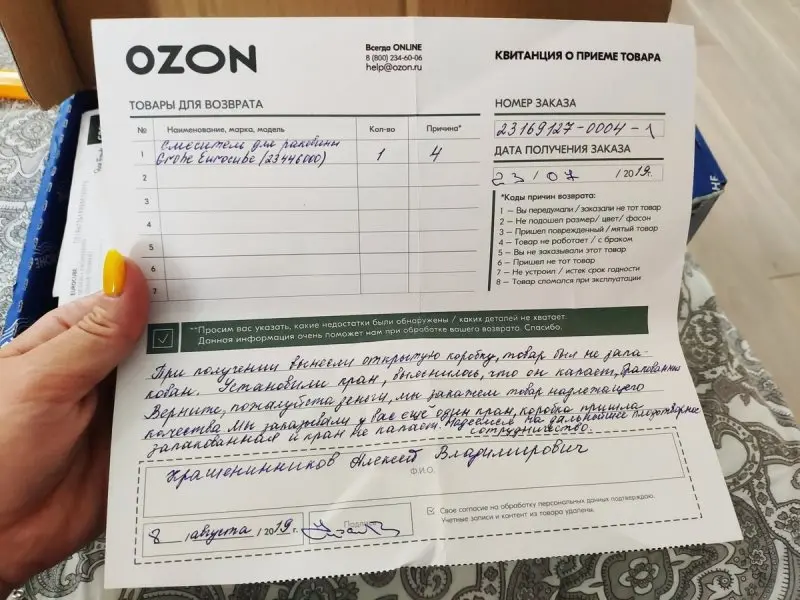 OZON
Всегда ONLINE
8 (800) 234-60-06
help@ozon.ru
КВИТАНЦИЯ О ПРИЕМЕ ТОВАРА
ТОВАРЫ ДЛЯ ВОЗВРАТА
№ Наименование, марка, модель Кол-во Причина*
1 Смеситель для раковины
Grohe Eurocube (23446000) 1 4
2
3
4
5
6
7
НОМЕР ЗАКАЗА
23169127-0004-1
ДАТА ПОЛУЧЕНИЯ ЗАКАЗА
23 / 07 / 2019г.
*Коды причин возврата:
1 — Вы передумали / заказали не тот товар
2 — Не подошел размер/ цвет/ фасон
3 — Пришел поврежденный/мятый товар
4 — Товар не работает / с браком
5 — Вы не заказывали этот товар
6 — Пришел не тот товар
7 — Не устроил / истек срок годности
8 — Товар сломался при эксплуатации
**Просим вас указать, какие недостатки были обнаружены / каких деталей не хватает.
Данная информация очень поможет нам при обработке вашего возврата. Спасибо.
При получении вынесли открытую коробку, товар был не запа-
кован. Установили кран, выяснилось, что он капает, бракованный
Верните, пожалуйста деньги, мы закажем товар надлежащего
качества. Мы заказывали у вас еще один кран, коробка пришла
запакованная и кран не капает. Надеемся на дальнейшее плодотворное
сотрудничество.
Крашенинников Алексей Владимирович
Ф.И.О.
8 / августа / 2019 г.
Подпись
Свое согласие на обработку персональных данных подтверждаю.
Учетные записи и контент из товара удалены.
HE